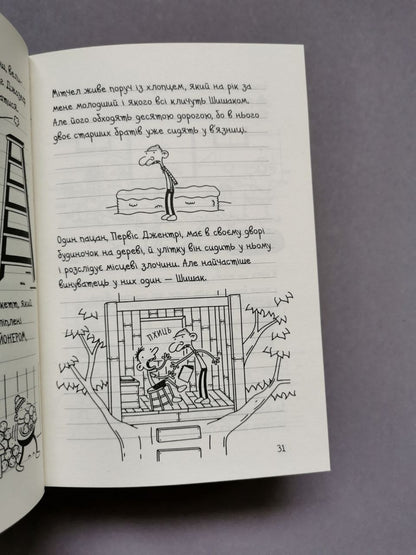 Мітчел живе поруч із хлопцем, який на рік за
мене молодший і якого всі кличуть Шишаком.
Але його обходять десятою дорогою, бо в нього
двоє старших братів уже сидять у в'язниці.
Один пацан, Первіс Джентрі, має в своєму дворі
будиночок на дереві, й улітку він сидить у ньому
і розслідує місцеві злочини. Але найчастіше
винуватець у них один — Шишак.
ПХИЦЬ
31